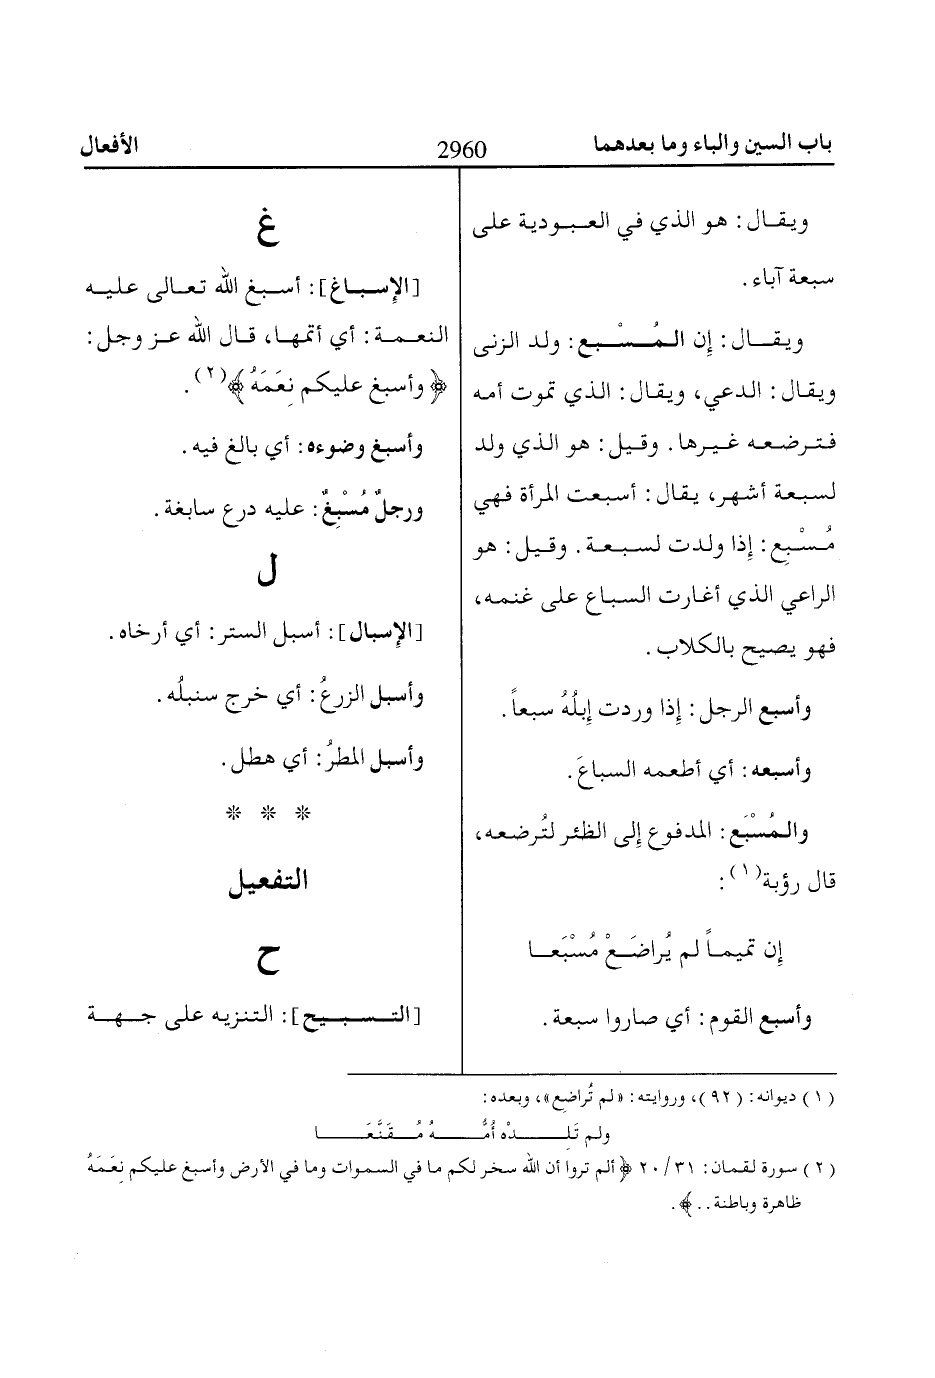 باب السين والباء وما بعدهما
2960
الأفعال
ويقال: هو الذي في العبودية على
سبعة آباء.
ويقال: إن المُسْبع: ولد الزنى
ويقال: الدعي، ويقال: الذي تموت أمه
فترضعه غيرها. وقيل: هو الذي ولد
لسبعة أشهر، يقال: أسبعت المرأة فهي
مُسْبِع: إذا ولدت لسبعة. وقيل: هو
الراعي الذي أغارت السباع على غنمه،
فهو يصيح بالكلاب.
وأسبع الرجل: إذا وردت إبلُهُ سبعاً.
وأسبعه: أي أطعمه السباعَ.
والمُسْبَع: المدفوع إلى الظئر لتُرضعه،
قال رؤبة(١):
إن تميماً لم يُراضَعْ مُسْبَعا
وأسبع القوم: أي صاروا سبعة.
غ
[الإسباغ]: أسبغ الله تعالى عليه
النعمة: أي أتمها، قال الله عز وجل:
﴿وأسبغ عليكم نِعَمَهُ﴾(٢).
وأسبغ وضوءه: أي بالغ فيه.
ورجلٌ مُسْبِغٌ: عليه درع سابغة.
ل
[الإسبال]: أسبل الستر: أي أرخاه.
وأسبل الزرعُ: أي خرج سنبلُه.
وأسبل المطرُ: أي هطل.
* * *
التفعيل
ح
[التسبيح]: التنزيه على جهة
(١) ديوانه: (٩٢)، وروايته: «لم تُراضِع»، وبعده:
ولم تَلِدْه أُمُّهُ مُقَنَّعَا
(٢) سورة لقمان: ٢٠/٣١ ﴿ألم تروا أن الله سخر لكم ما في السموات وما في الأرض وأسبغ عليكم نِعَمَهُ
ظاهرة وباطنة..﴾.